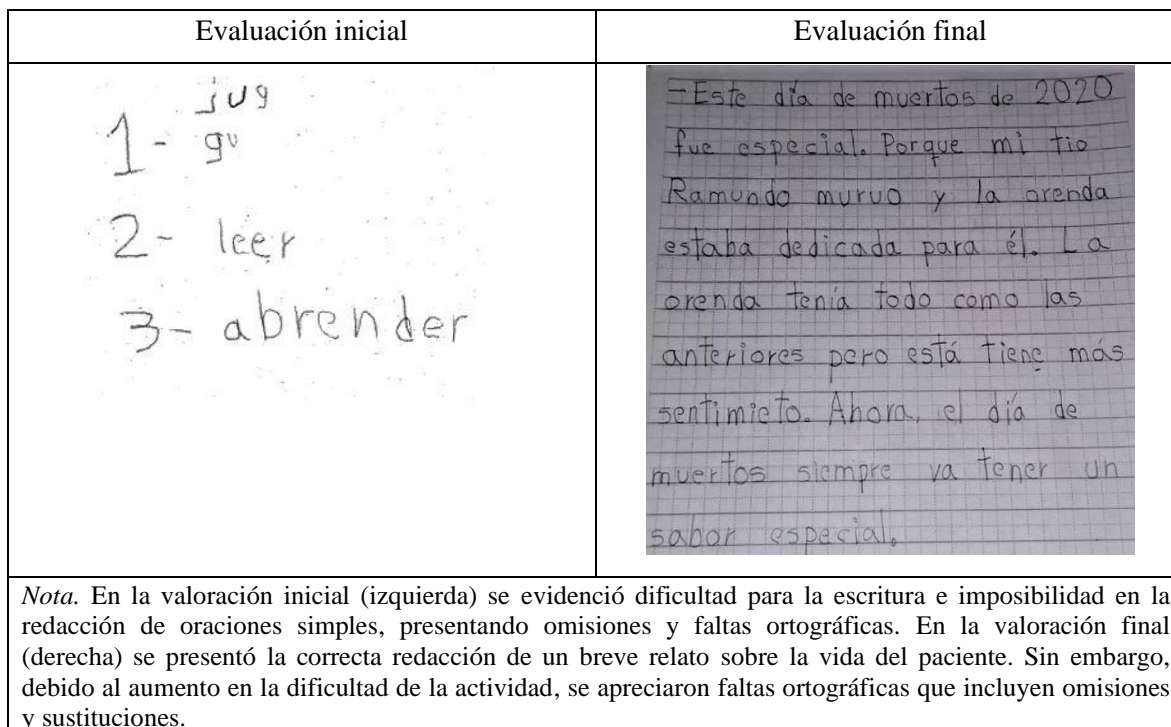 Evaluación inicial
Evaluación final
jug
1- gu
2- leer
3- abrender
-Este día de muertos de 2020
fue especial. Porque mi tio
Ramundo muruo y la orenda
estaba dedicada para él. La
orenda tenía todo como las
anteriores pero está tiene más
sentimieto. Ahora, el día de
muertos siempre va tener un
sabor especial.
Nota. En la valoración inicial (izquierda) se evidenció dificultad para la escritura e imposibilidad en la
redacción de oraciones simples, presentando omisiones y faltas ortográficas. En la valoración final
(derecha) se presentó la correcta redacción de un breve relato sobre la vida del paciente. Sin embargo,
debido al aumento en la dificultad de la actividad, se apreciaron faltas ortográficas que incluyen omisiones
y sustituciones.